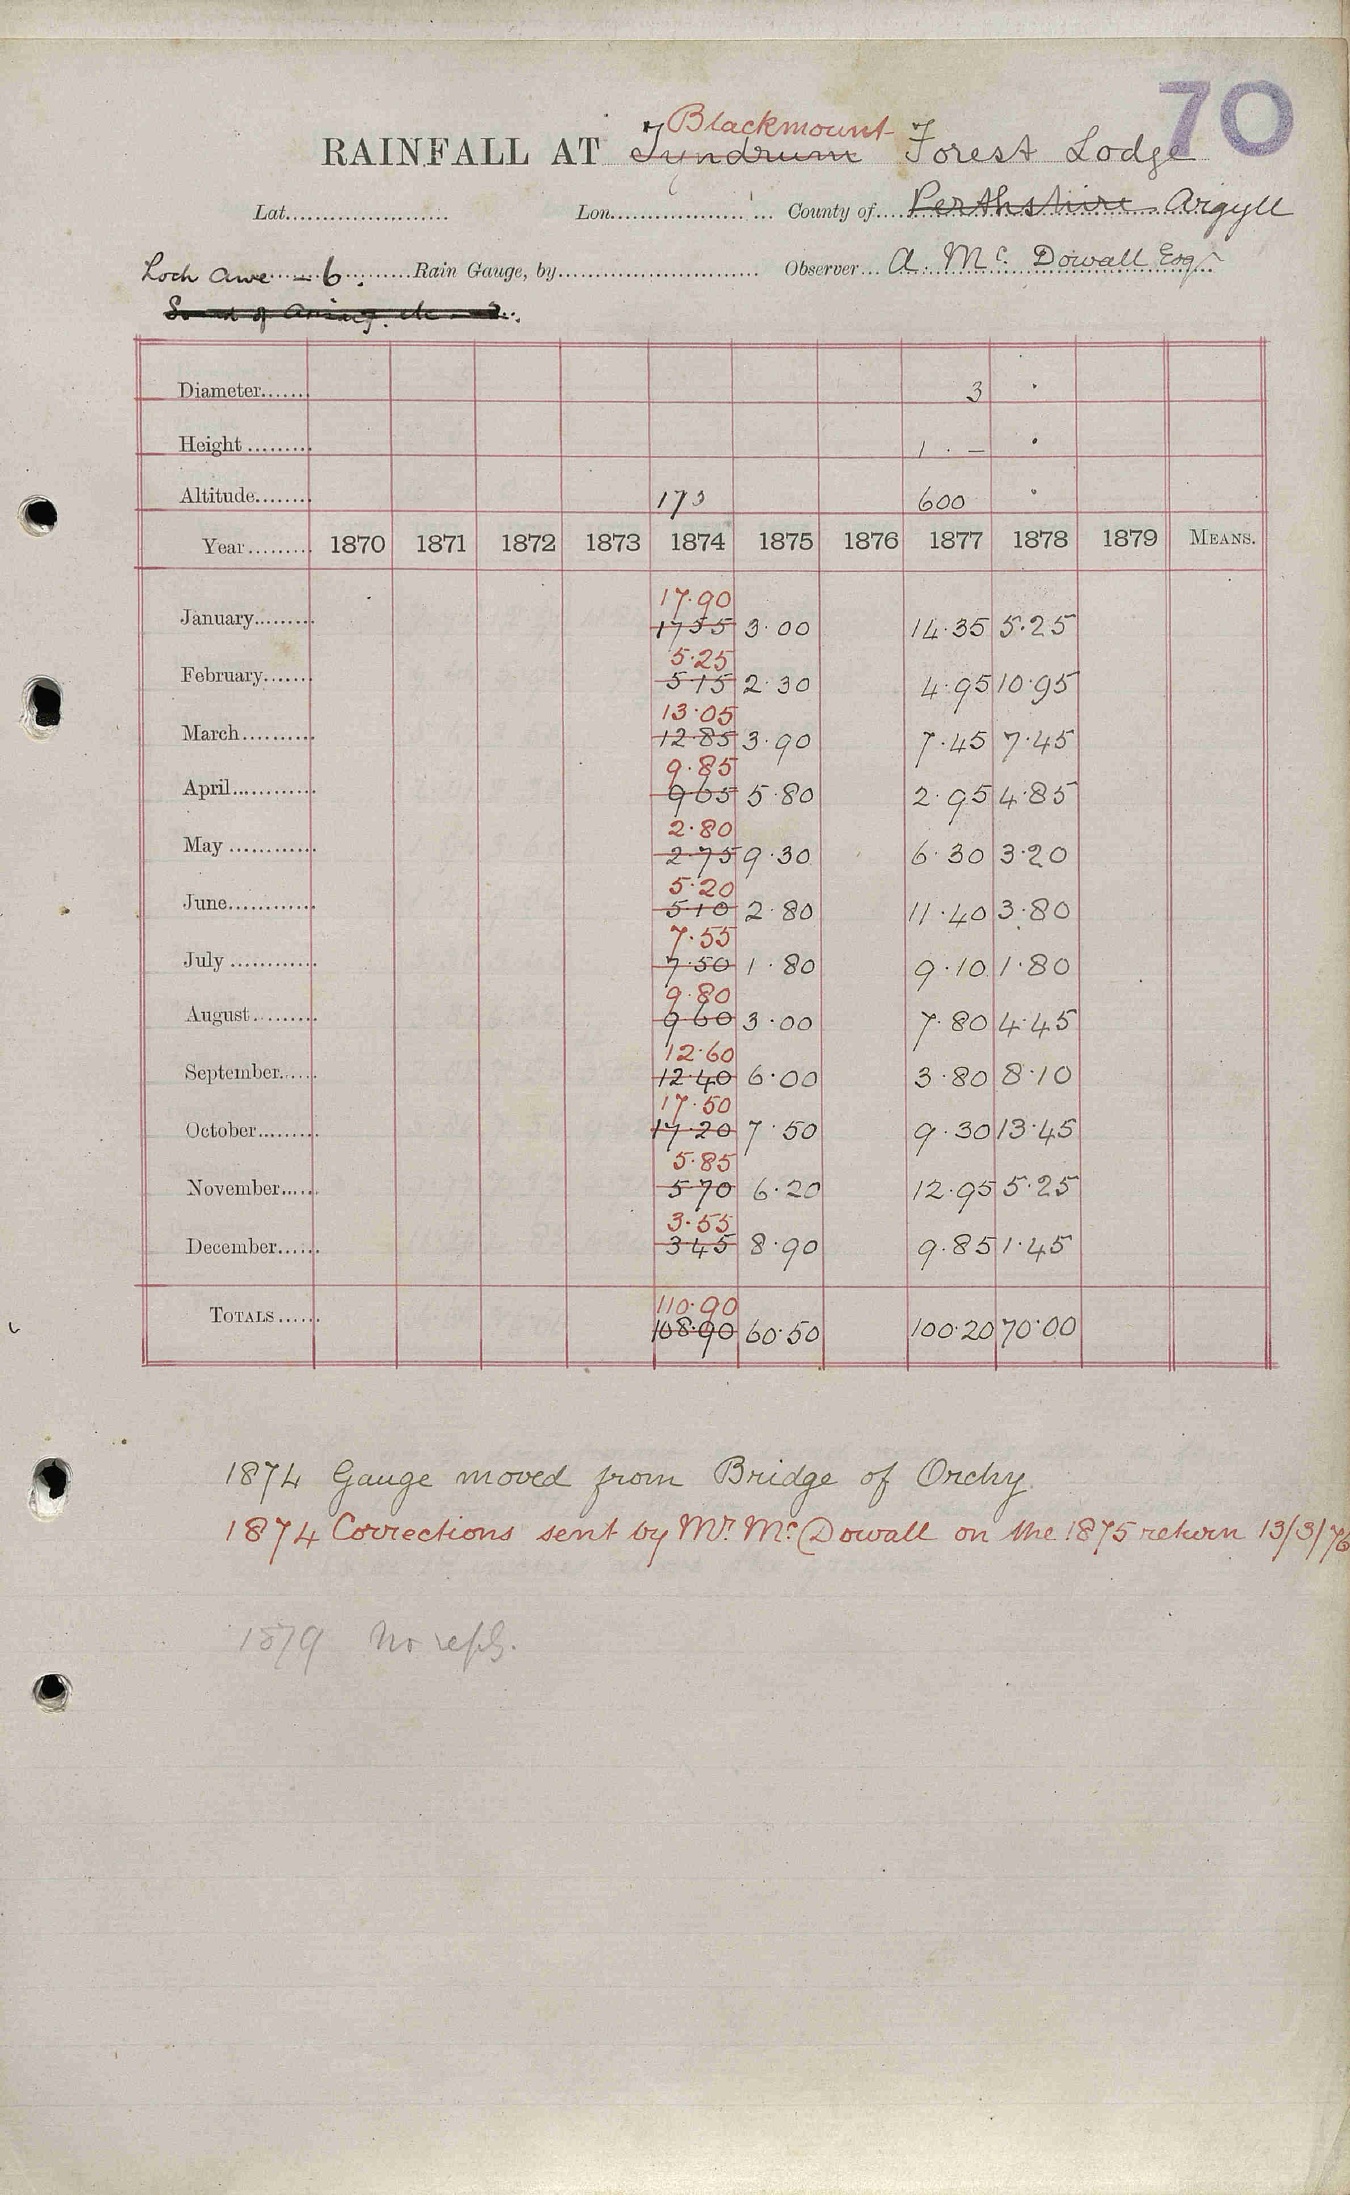 70
Blackmount
RAINFALL AT Tyndrum Forest Lodge
Lat. Lon. County of Perthshire Argyll
Loch Awe - 6. Rain Gauge, by Observer A. Mc. Dowall Esqr
Diameter 3 "
Height 1 · – "
Altitude 173 600 "
Year 1870 1871 1872 1873 1874 1875 1876 1877 1878 1879 MEANS.
17.90
January 17 55 3.00 14.35 5.25
5.25
February 5 15 2.30 4.95 10.95
13.05
March 12.85 3.90 7.45 7.45
9.85
April 9 65 5.80 2.95 4.85
2.80
May 2.75 9.30 6.30 3.20
5.20
June 5 10 2.80 11.40 3.80
7.55
July 7.50 1.80 9.10 1.80
9.80
August 9 60 3.00 7.80 4.45
12.60
September 12.40 6.00 3.80 8.10
17.50
October 17.20 7.50 9.30 13.45
5.85
November 5 70 6.20 12.95 5.25
3.55
December 3.45 8.90 9.85 1.45
110.90
TOTALS 108.90 60.50 100.20 70.00
1874 Gauge moved from Bridge of Orchy
1874 Corrections sent by Mr. Mc. Dowall on the 1875 return 13/3/76
1879 No reply.